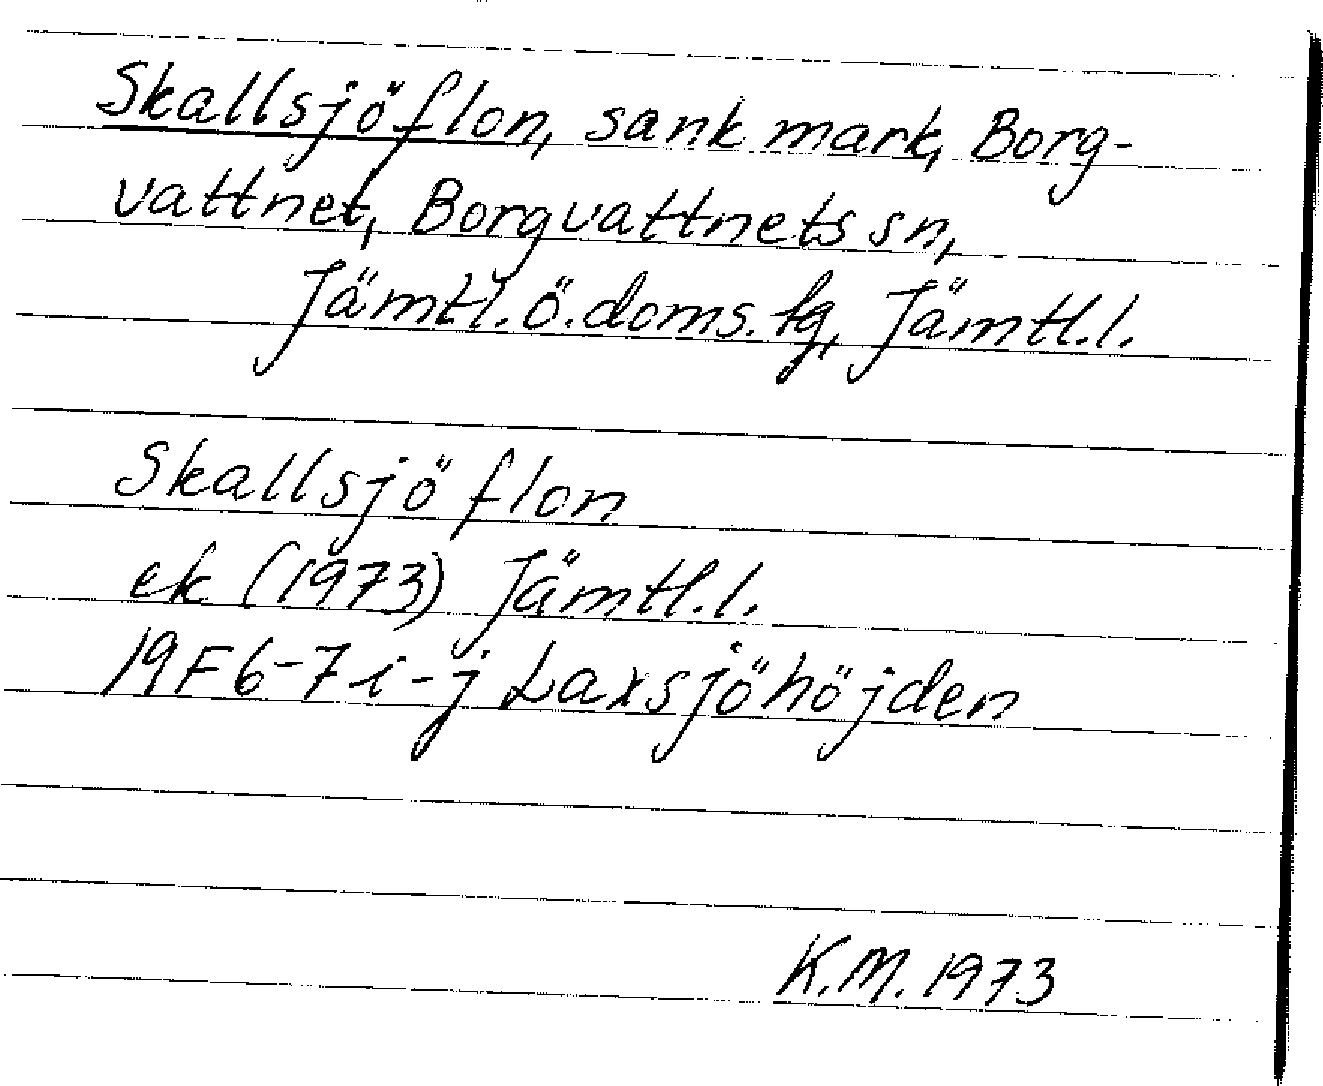 Skallsjöflon, sank mark, Borg-
vattnet, Borgvattnets sn,
Jämtl. ö. doms. tg, Jämtl. l.
Skallsjöflon
ek (1973) Jämtl. l.
19F6-7i-j Laxsjöhöjden
K.M. 1973